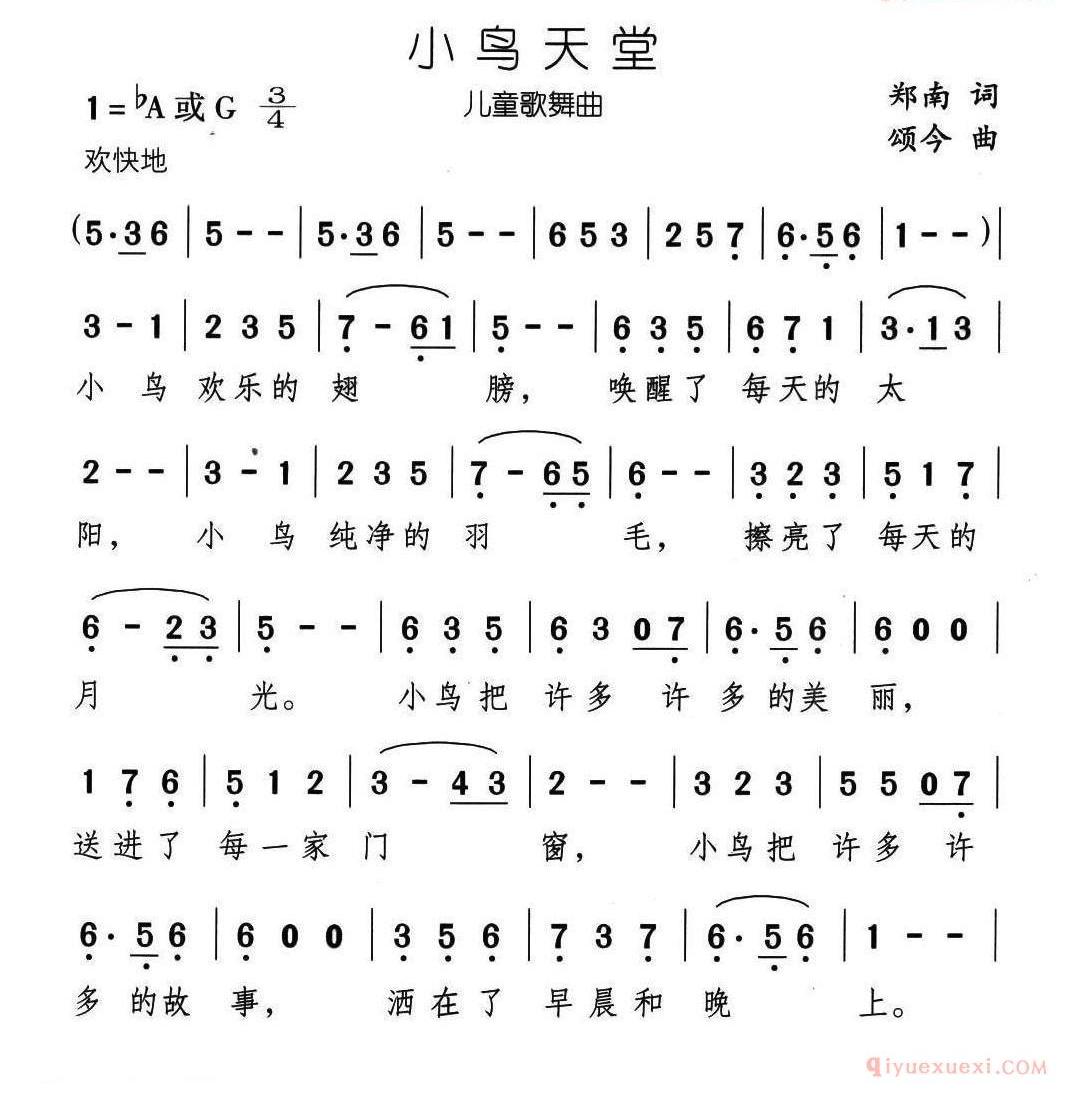 小鸟天堂
1=♭A或G 3/4
儿童歌舞曲
郑南 词
颂今 曲
欢快地
(5·36 | 5-- | 5·36 | 5-- | 653 | 257 | 6·56 | 1--)|
3-1 | 235 | 7-61 | 5-- | 635 | 671 | 3·13 |
小鸟 欢乐的 翅 膀， 唤醒了 每天的 太
2-- | 3-1 | 235 | 7-65 | 6-- | 323 | 517 |
阳， 小鸟 纯净的 羽 毛， 擦亮了 每天的
6-23 | 5-- | 635 | 6307 | 6·56 | 600 |
月 光。 小鸟把 许多 许 多的美 丽，
176 | 512 | 3-43 | 2-- | 323 | 5507 |
送进了 每一家 门 窗， 小鸟把 许多 许
6·56 | 600 | 356 | 737 | 6·56 | 1-- |
多的故 事， 洒在了 早晨和 晚 上。
qiyuexuexi.COM